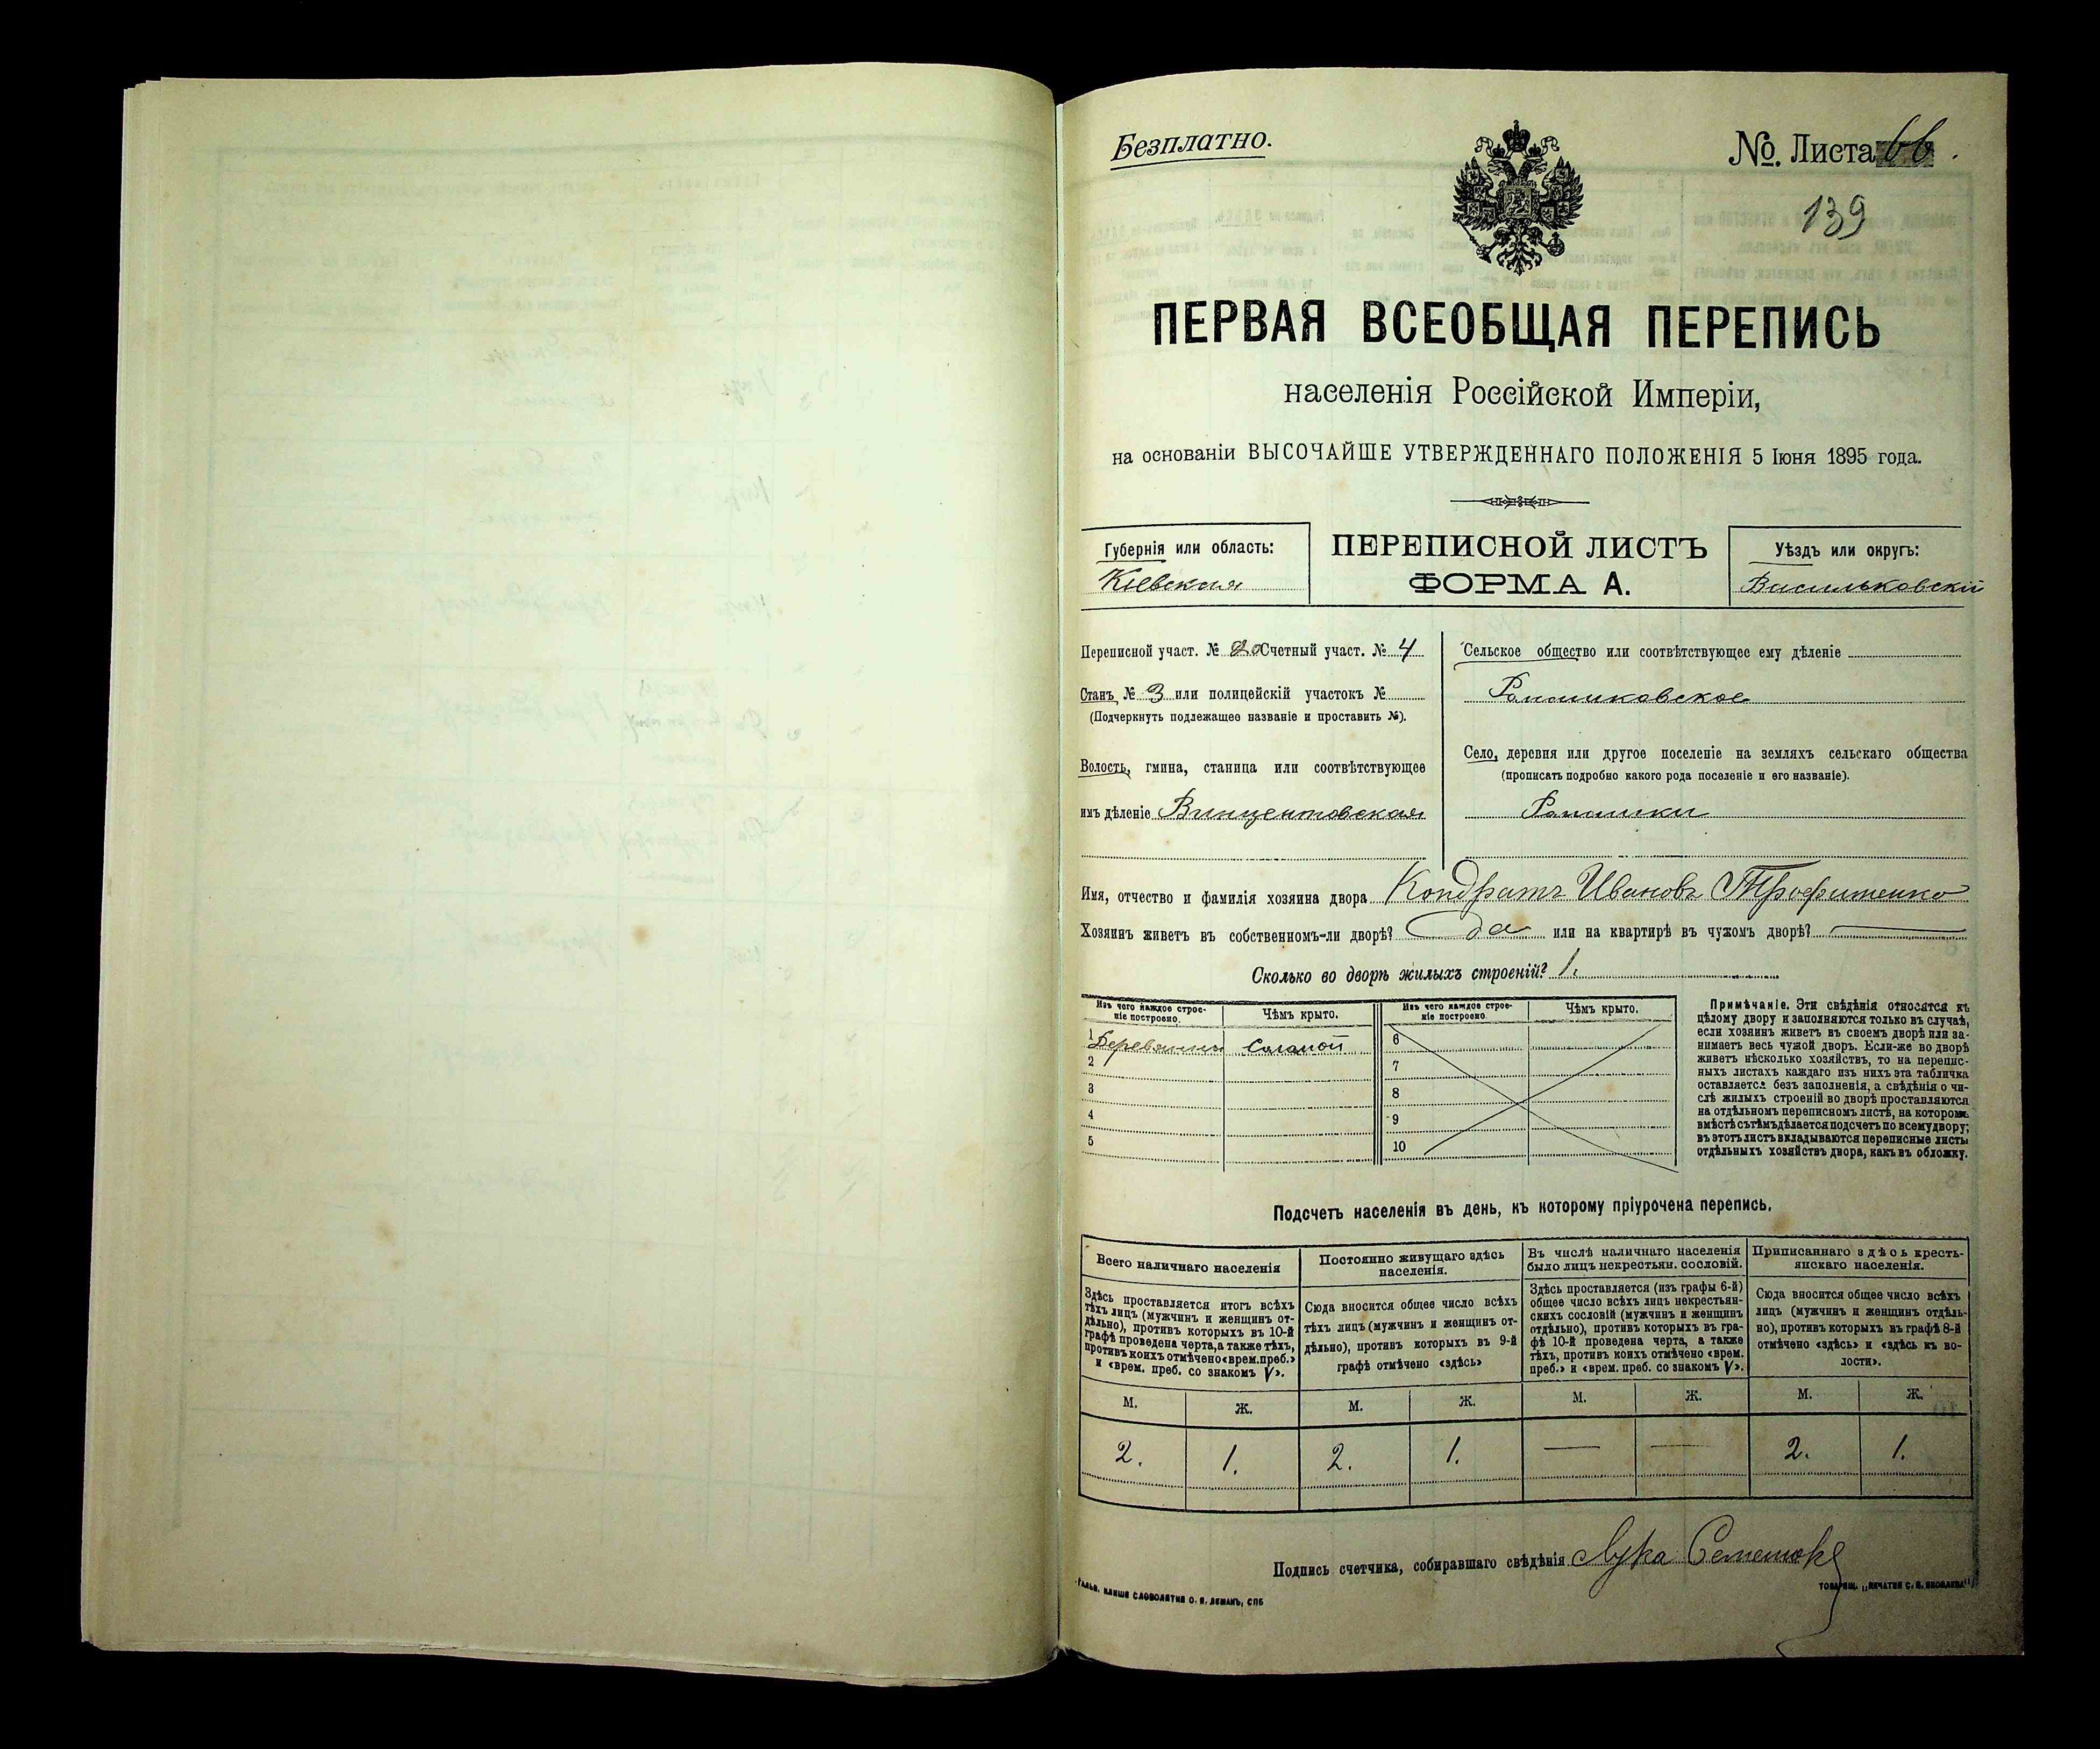 Безплатно.
№. Листа 66.
139
ПЕРВАЯ ВСЕОБЩАЯ ПЕРЕПИСЬ
населенія Россійской Имперіи,
на основаніи ВЫСОЧАЙШЕ УТВЕРЖДЕННАГО ПОЛОЖЕНІЯ 5 Іюня 1895 года.
Губернія или область:
Кіевская
ПЕРЕПИСНОЙ ЛИСТЪ
ФОРМА А.
Уѣздъ или округъ:
Васильковскій
Переписной участ. № 20 Счетный участ. № 4
Станъ № 3 или полицейскій участокъ №
(Подчеркнуть подлежащее названіе и проставить №).
Волость, гмина, станица или соотвѣтствующее
имъ дѣленіе Винцентовская
Сельское общество или соотвѣтствующее ему дѣленіе
Ромашковское
Село, деревня или другое поселеніе на земляхъ сельскаго общества
(прописать подробно какого рода поселеніе и его названіе).
Ромашки
Имя, отчество и фамилія хозяина двора Кондратъ Ивановъ Трофименко
Хозяинъ живетъ въ собственномъ-ли дворѣ? да или на квартирѣ въ чужомъ дворѣ?
Сколько во дворѣ жилыхъ строеній? 1.
Изъ чего каждое строе-
ніе построено.
Чѣмъ крыто.
1 Деревянны Соломой
2
3
4
5
Изъ чего каждое строе-
ніе построено.
Чѣмъ крыто.
6
7
8
9
10
Примѣчаніе. Эти свѣдѣнія относятся къ
цѣлому двору и заполняются только въ случаѣ,
если хозяинъ живетъ въ своемъ дворѣ или за-
нимаетъ весь чужой дворъ. Если-же во дворѣ
живетъ нѣсколько хозяйствъ, то на перепис-
ныхъ листахъ каждаго изъ нихъ эта табличка
оставляется безъ заполненія, а свѣдѣнія о чи-
слѣ жилыхъ строеній во дворѣ проставляются
на отдѣльномъ переписномъ листѣ, на которомъ
вмѣстѣ съ тѣмъ дѣлается подсчетъ по всему двору;
въ этотъ листъ вкладываются переписные листы
отдѣльныхъ хозяйствъ двора, какъ въ обложку.
Подсчетъ населенія въ день, къ которому пріурочена перепись.
Всего наличнаго населенія
Здѣсь проставляется итогъ всѣхъ
тѣхъ лицъ (мужчинъ и женщинъ от-
дѣльно), противъ которыхъ въ 10-й
графѣ проведена черта, а также тѣхъ,
противъ коихъ отмѣчено «врем. преб.»
и «врем. преб. со знакомъ V».
Постоянно живущаго здѣсь
населенія.
Сюда вносится общее число всѣхъ
тѣхъ лицъ (мужчинъ и женщинъ от-
дѣльно), противъ которыхъ въ 9-й
графѣ отмѣчено «здѣсь»
Въ числѣ наличнаго населенія
было лицъ некрестьян. сословій.
Здѣсь проставляется (изъ графы 6-й)
общее число всѣхъ лицъ некрестьян-
скихъ сословій (мужчинъ и женщинъ
отдѣльно), противъ которыхъ въ гра-
фѣ 10-й проведена черта, а также
тѣхъ, противъ коихъ отмѣчено «врем.
преб.» и «врем. преб. со знакомъ V».
Приписаннаго здѣсь кресть-
янскаго населенія.
Сюда вносится общее число всѣхъ
лицъ (мужчинъ и женщинъ отдѣль-
но), противъ которыхъ въ графѣ 8-й
отмѣчено «здѣсь» и «здѣсь къ во-
лости».
М. Ж. М. Ж. М. Ж. М. Ж.
2. 1. 2. 1. — — 2. 1.
Подпись счетчика, собиравшаго свѣдѣнія Лука
Гальв. клише словолитня О. И. Леманъ, СПБ
Товарищ. „Печатня С. П. Яковлева“